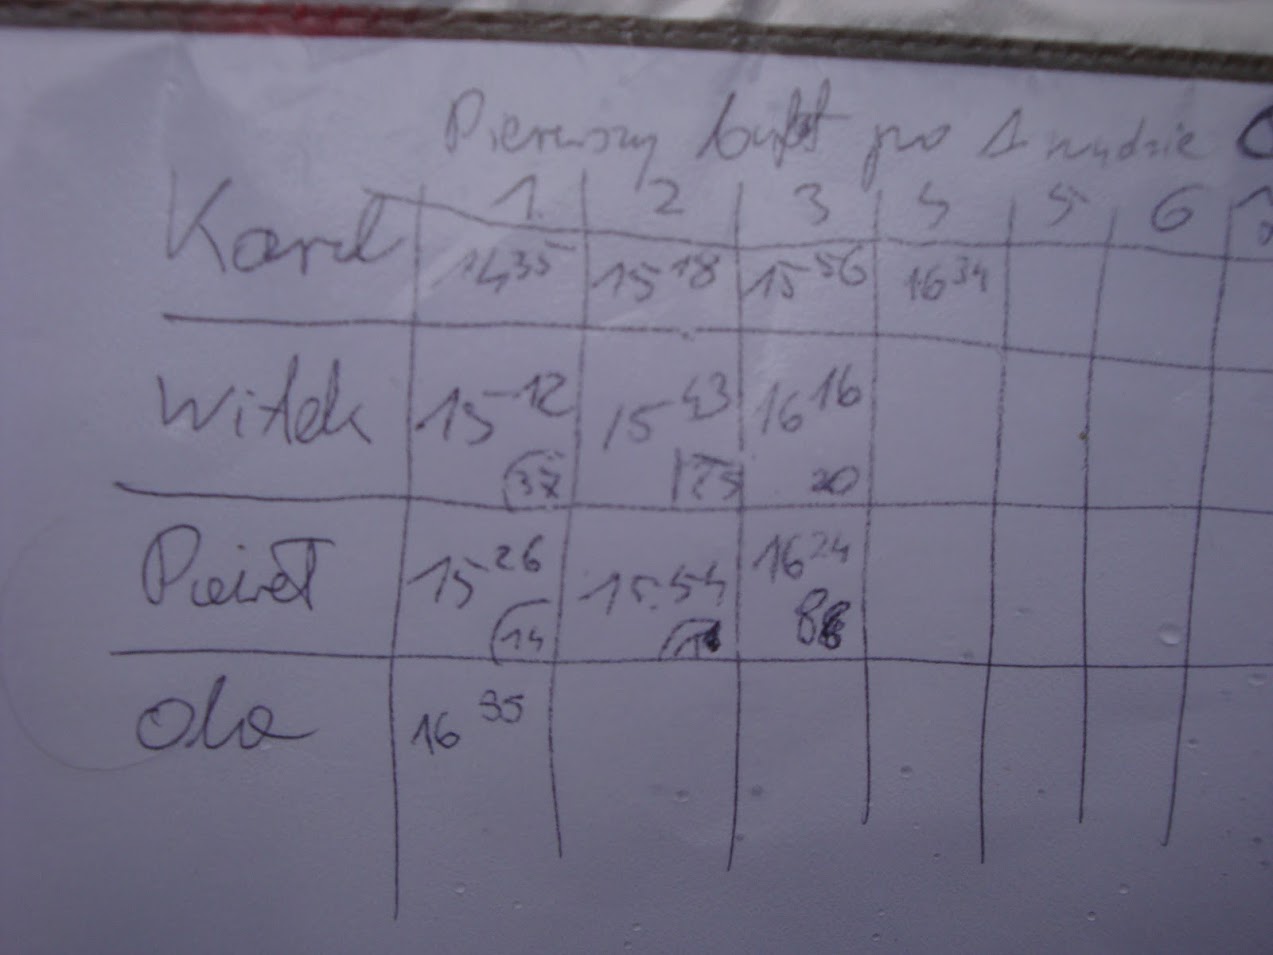 Pierwszy bufet po 1 rundzie
1. 2 3 4 5 6
Karol 14 35 15 18 15 56 16 34
Witek 15 12 15 43 16 16
37 25 20
Paweł 15 26 15.54 16 24
14 8
Ola 16 35